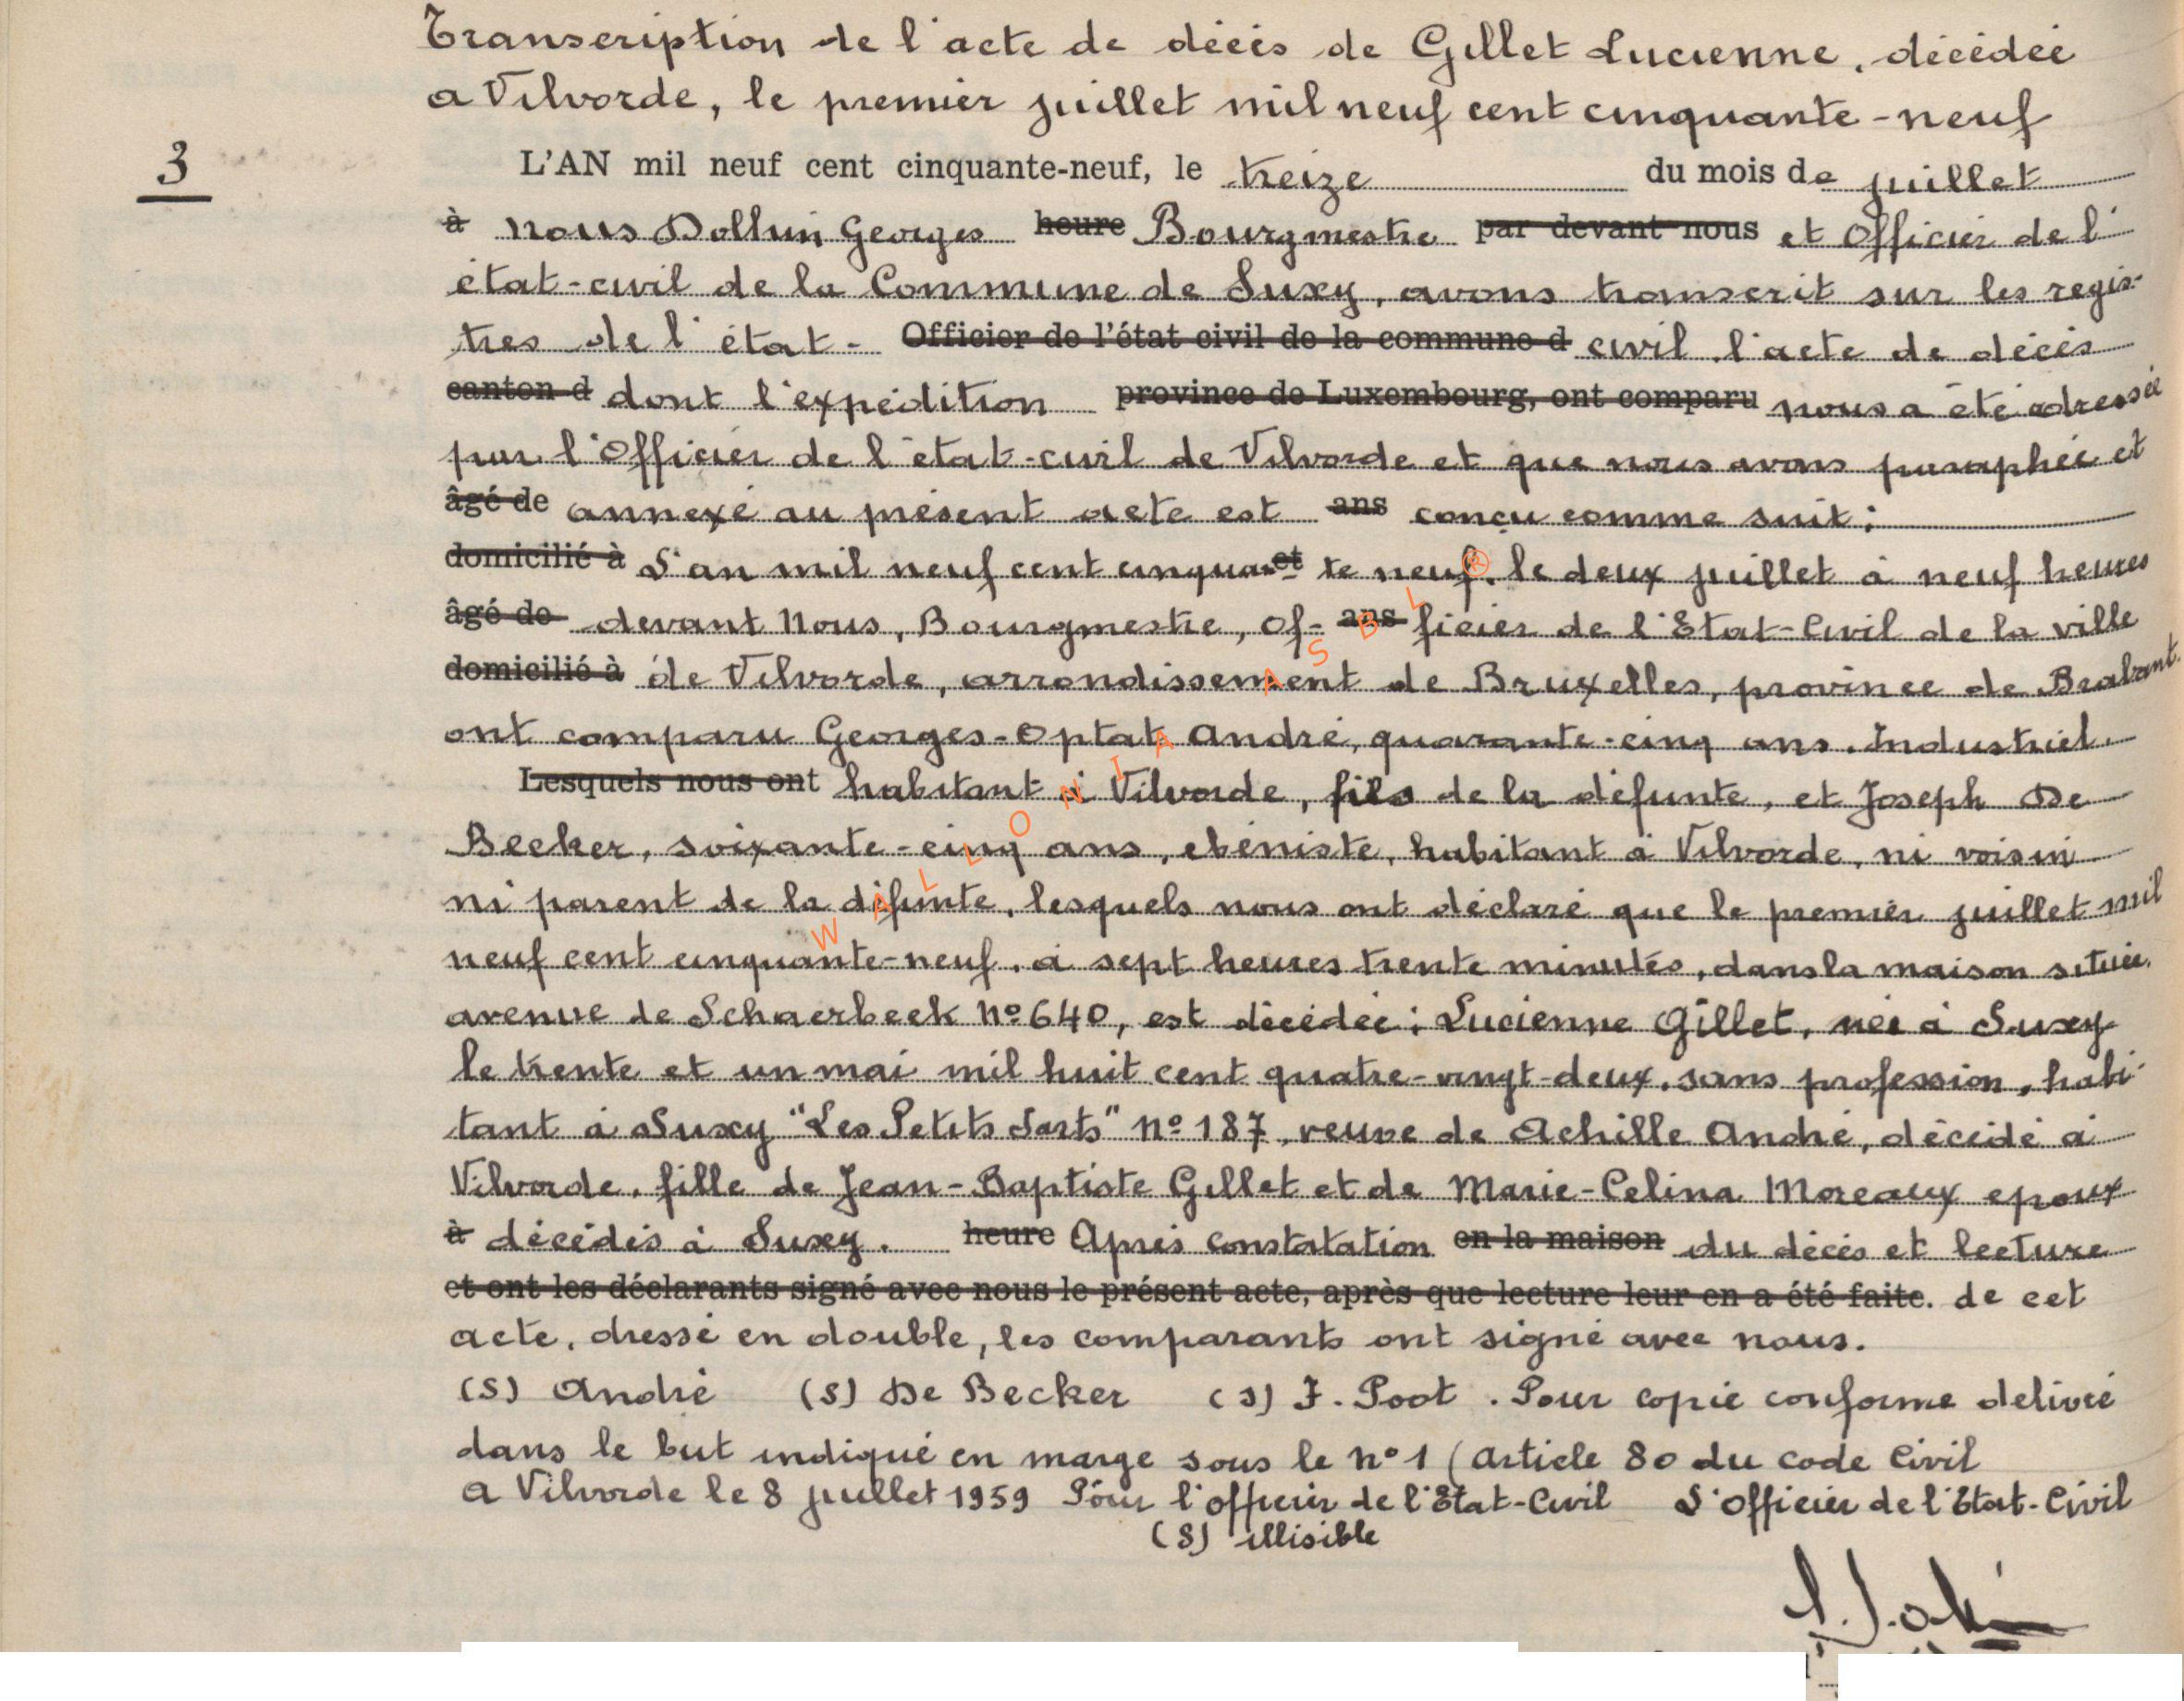 Transcription de l'acte de décès de Gillet Lucienne, décédée
a Vilvorde, le premier juillet mil neuf cent cinquante-neuf
3
L'AN mil neuf cent cinquante-neuf, le treize du mois de juillet
à nous Dollun Georges heure Bourgmestre par devant nous et Officier de l'
état-civil de la Commune de Suxy, avons transcrit sur les regis-
tres de l'état- Officier de l'état civil de la commune d civil l'acte de décès
canton d dont l'expédition province de Luxembourg, ont comparu nous a été adressée
par l'Officier de l'état-civil de Vilvorde et que nous avons paraphée et
âgé de annexé au présent acte est ans conçu comme suit :
domicilié à L'an mil neuf cent cinquan et te neuf, le deux juillet à neuf heures
âgé de devant Nous, Bourgmestre, Of- ans ficier de l'Etat-Civil de la ville
domicilié à de Vilvorde, arrondissement de Bruxelles, province de Brabant.
ont comparu Georges-Optat André, quarante-cinq ans, Industriel.
Lesquels nous ont habitant à Vilvorde, fils de la défunte, et Joseph De
Becker, soixante-cinq ans, ebéniste, habitant à Vilvorde, ni voisin
ni parent de la défunte, lesquels nous ont déclaré que le premier juillet mil
neuf cent cinquante-neuf, à sept heures trente minutes, dans la maison située
avenue de Schaerbeek nº 640, est décédée : Lucienne Gillet, née à Suxy
le trente et un mai mil huit cent quatre-vingt-deux, sans profession, habi-
tant à Suxy "Les Petits Sarts" nº 187, veuve de Achille André, décédé à
Vilvorde, fille de Jean-Baptiste Gillet et de Marie-Celina Moreaux epoux
à décédés à Suxy. heure Après constatation en la maison du décès et lecture
et ont les déclarants signé avec nous le présent acte, après que lecture leur en a été faite. de cet
acte, dressé en double, les comparants ont signé avec nous.
(S) André (S) De Becker (S) F. Poot. Pour copie conforme delivré
dans le but indiqué en marge sous le nº 1 (Article 80 du code Civil
a Vilvorde le 8 juillet 1959 Pour l'officier de l'Etat-Civil L'Officier de l'Etat-Civil
(S) illisible
WALLONIA ASBL ®